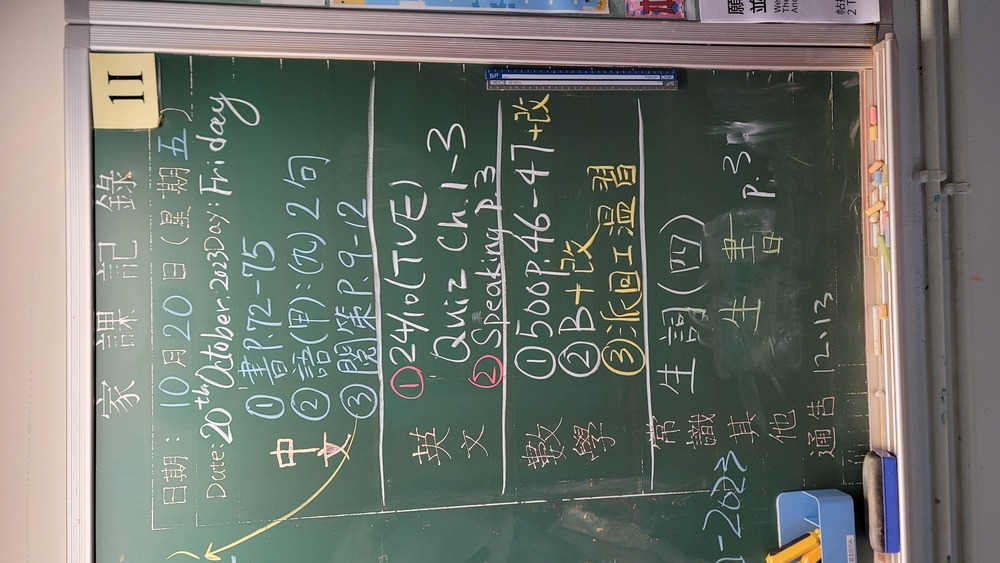 11
家課記錄
日期: 10月20日(星期五)
Date: 20th October. 2023 Day: Friday
中文
①書P.72-75
②語(甲):(九)2句
③閱第P.9-12
英文
①24/10(TUE)
Quiz Ch.1-3
②Speaking P.3
數學
①500P.46-47+改
②B+改
③派回工溫習
常識
生詞(四)
其他
生書 P.3
通告
12,13
-2023